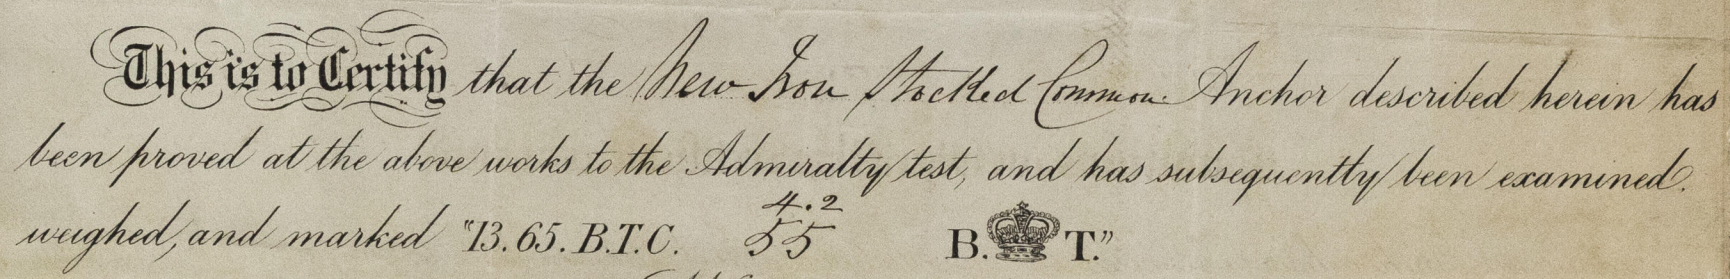 This is to Certify that the New Iron Stocked Common Anchor described herein has
been proved at the above works to the Admiralty test, and has subsequently been examined.
4.2
weighed, and marked "13. 65. B.T.C. 55 B. T."